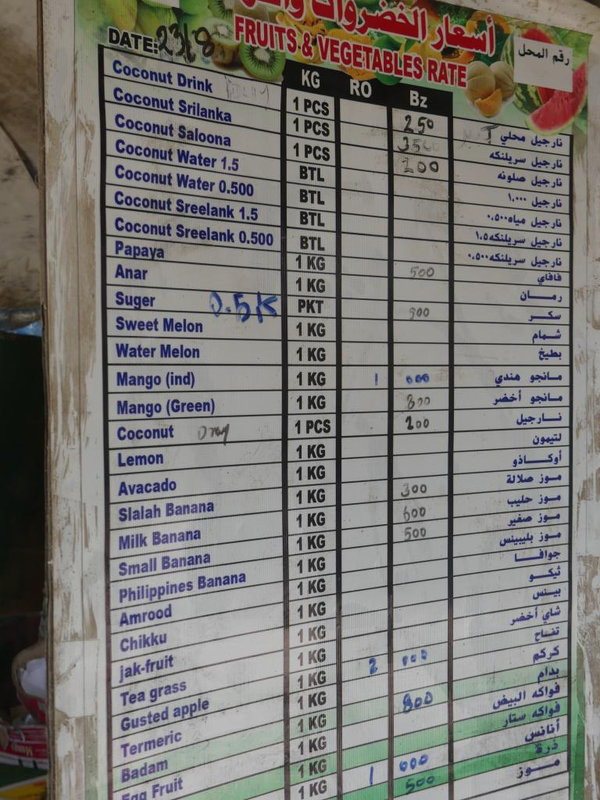 أسعار الخضروات
رقم المحل
FRUITS & VEGETABLES RATE
DATE: 23/8
KG RO Bz
Coconut Drink 1 PCS 250 نارجيل محلي
Coconut Srilanka 1 PCS 350 نارجيل سريلنكه
Coconut Saloona 1 PCS 200 نارجيل صلونه
Coconut Water 1.5 BTL نارجيل ١.٠٠٠
Coconut Water 0.500 BTL نارجيل مياه ٠.٥٠٠
Coconut Sreelank 1.5 BTL نارجيل سريلنكه ١.٥
Coconut Sreelank 0.500 BTL نارجيل سريلنكه ٠.٥٠٠
Papaya 1 KG 500 فافاي
Anar 1 KG رمان
Suger 0.5K PKT 900 سكر
Sweet Melon 1 KG شمام
Water Melon 1 KG بطيخ
Mango (ind) 1 KG 1 000 مانجو هندي
Mango (Green) 1 KG 800 مانجو أخضر
Coconut Dry 1 PCS 200 نارجيل
Lemon 1 KG لتيمون
Avacado 1 KG أوكاذو
Slalah Banana 1 KG 300 موز صلالة
Milk Banana 1 KG 600 موز حليب
Small Banana 1 KG 500 موز صغير
Philippines Banana 1 KG موز بليبينس
Amrood 1 KG جوافا
Chikku 1 KG ثيكو
jak-fruit 1 KG بينس
Tea grass 1 KG شاي أخضر
Gusted apple 1 KG 2 000 تفاح
Termeric 1 KG كركم
Badam 1 KG 800 بدام
Egg Fruit 1 KG فواكه البيض
1 KG فواكه ستار
1 KG 1 600 أنانس
500 ذرة
موز